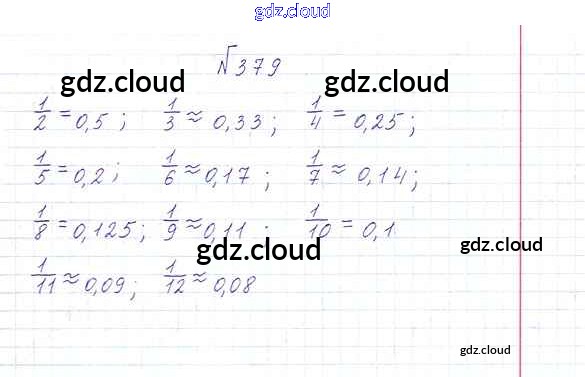 gdz.cloud
√379
gdz.cloud gdz.cloud
1/2 = 0,5 ; 1/3 ≈ 0,33 ; 1/4 = 0,25 ;
1/5 = 0,2 ; 1/6 ≈ 0,17 ; 1/7 ≈ 0,14 ;
1/8 = 0,125 ; 1/9 ≈ 0,11 ; 1/10 = 0,1
gdz.cloud gdz.cloud
1/11 ≈ 0,09 ; 1/12 ≈ 0,08
gdz.cloud